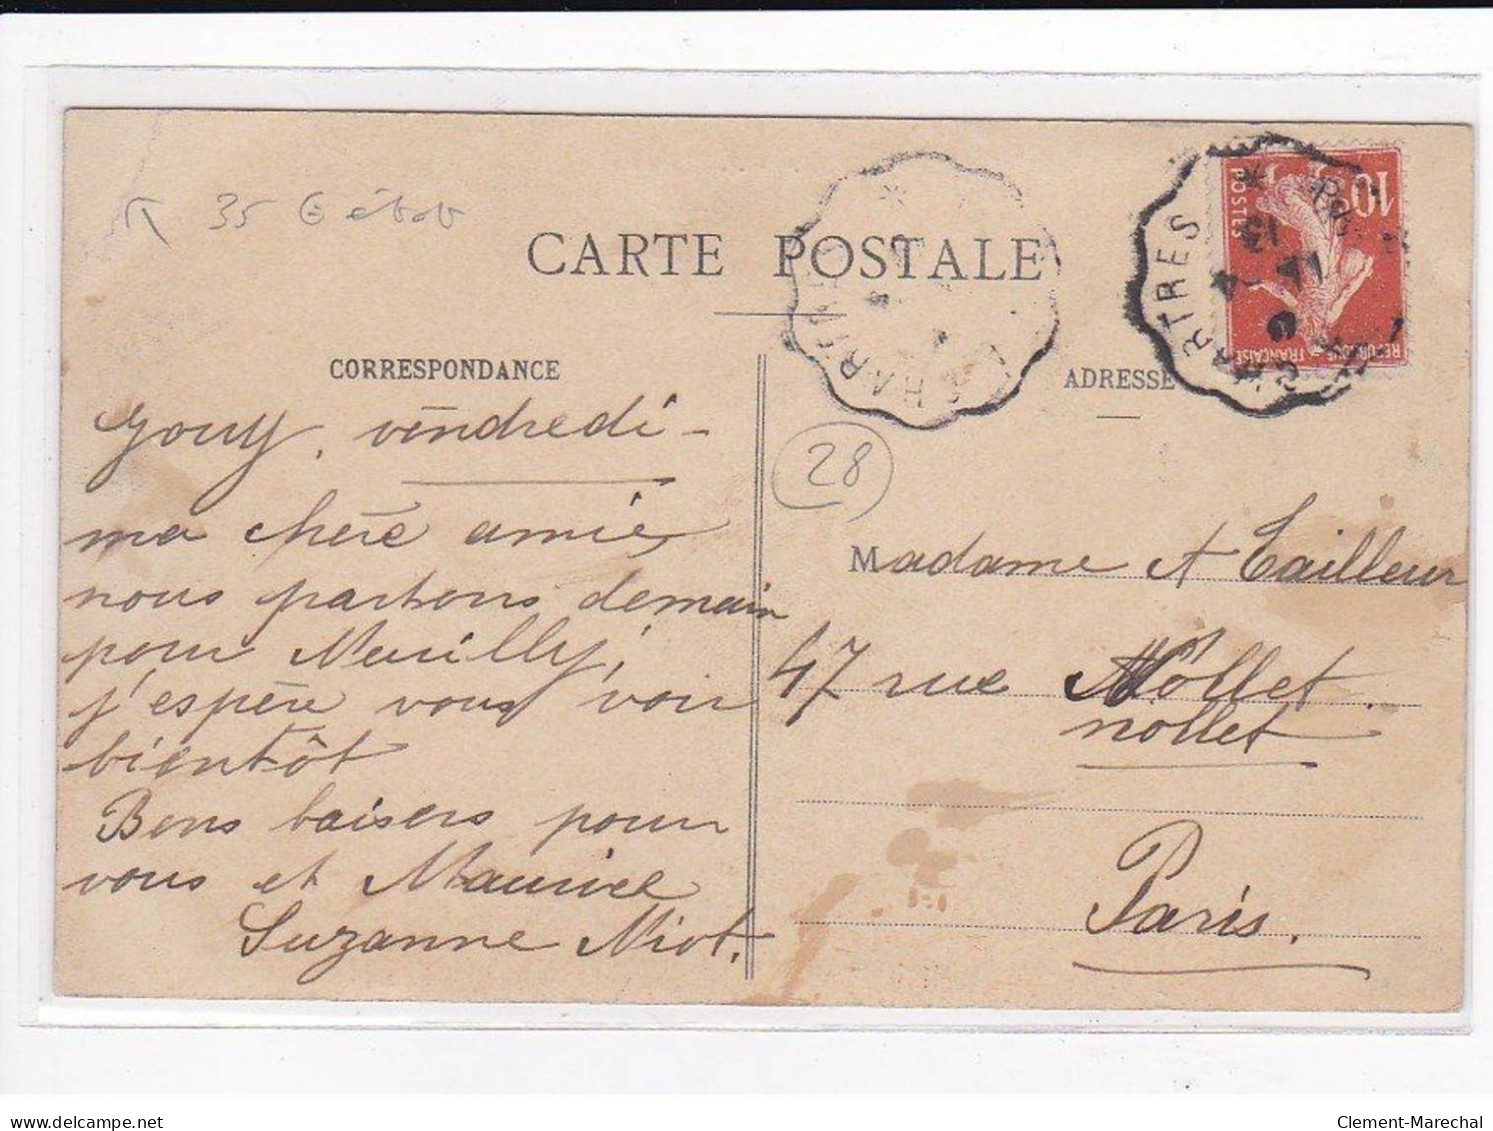 35
CARTE POSTALE
CORRESPONDANCE
ADRESSE
10
POSTES
REPUBLIQUE FRANÇAISE
RTRES
CHART
28
Gouy, vendredi -
ma chère amie,
nous partons demain
pour Neuilly,
j'espère vous voir
bientôt
Bons baisers pour
vous et Maurice
Suzanne Niot.
Madame A Tailleur
47 rue Nollet
nollet
Paris.
Clement-Marechal
delcampe.net